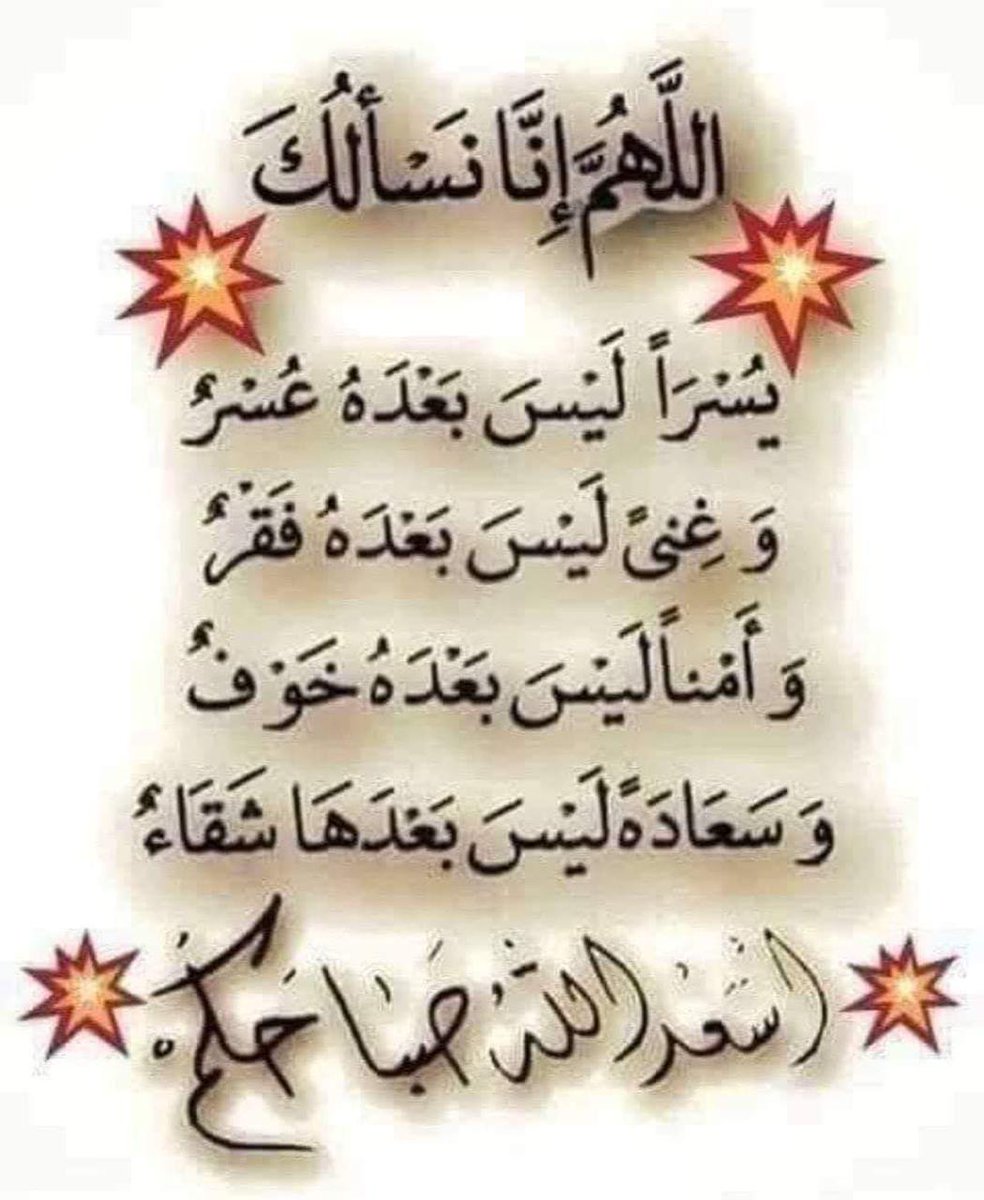 اللَّهُمَّ إِنَّا نَسْألُكَ
يُسْرَاً لَيْسَ بَعْدَهُ عُسْرٌ
وَ غِنىً لَيْسَ بَعْدَهُ فَقْرٌ
وَ أَمْناً لَيْسَ بَعْدَهُ خَوْفٌ
وَ سَعَادَةً لَيْسَ بَعْدَهَا شَقَاءٌ
اسْعَد اللهُ صَبَاحَكُم